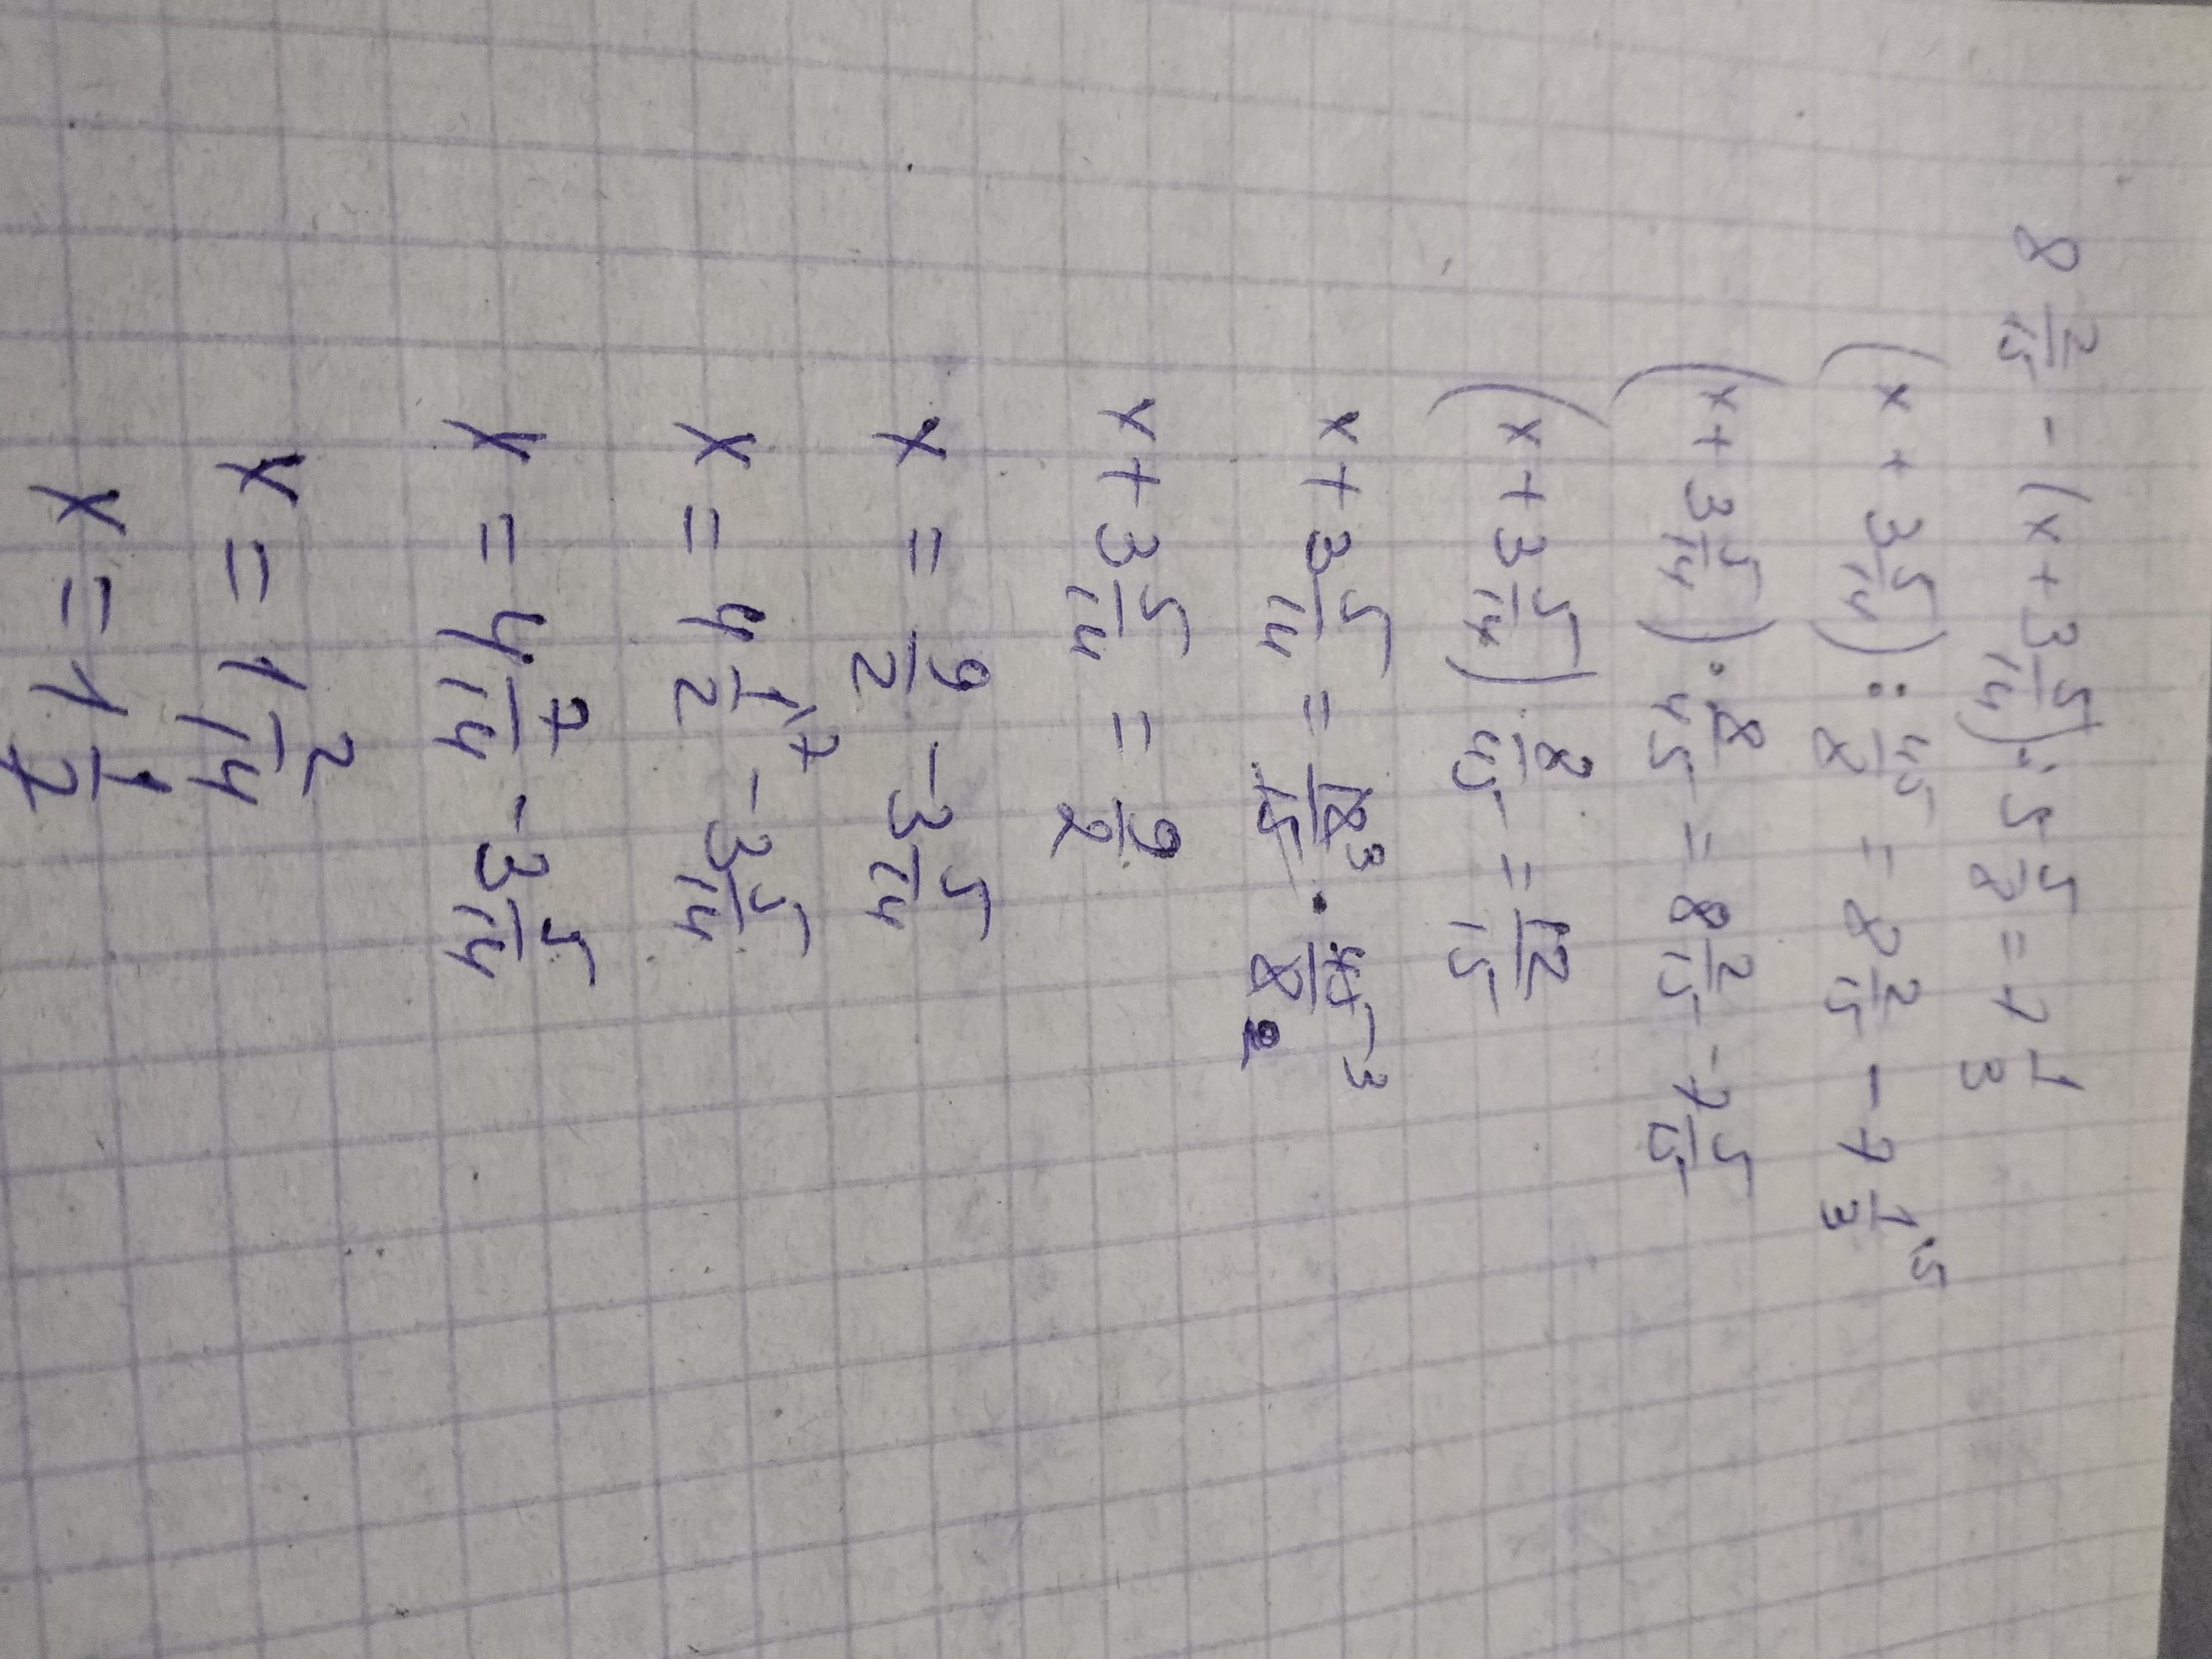 8 2/15 - (x + 3 5/14) : 5 5/8 = 7 1/3
(x + 3 5/14) : 45/8 = 8 2/15 - 7 1/3 \5
(x + 3 5/14) · 8/45 = 8 2/15 - 7 5/15
(x + 3 5/14) 8/45 = 12/15
x + 3 5/14 = 12 3/15 · 45 3/8 2
x + 3 5/14 = 9/2
x = 9/2 - 3 5/14
x = 4 1/2 \7 - 3 5/14
x = 4 7/14 - 3 5/14
x = 1 2/14
x = 1 1/7